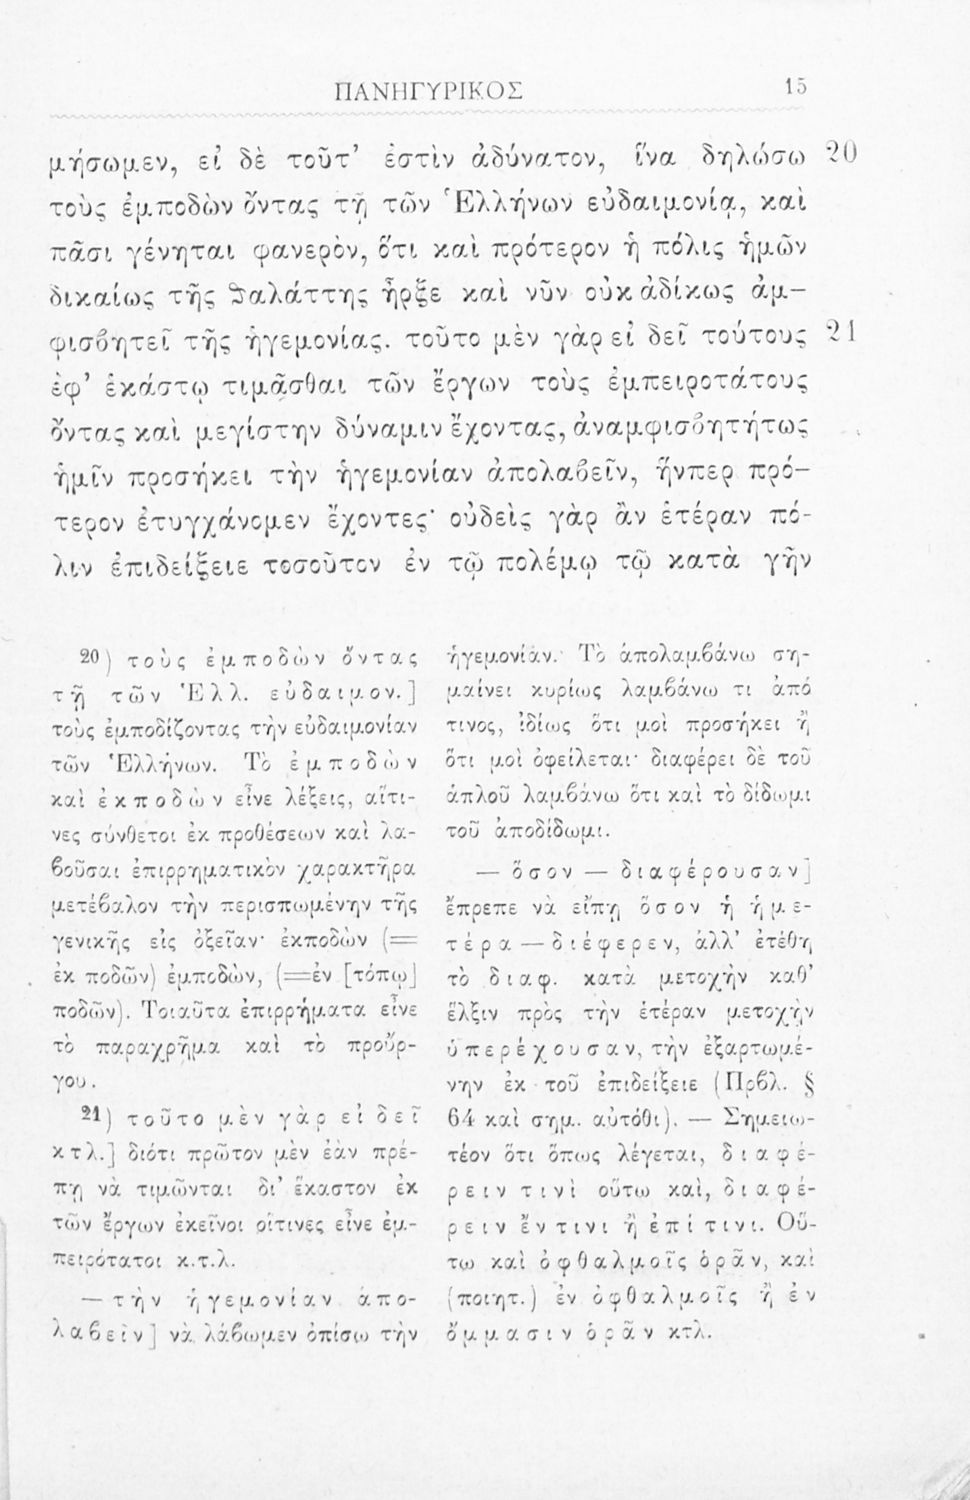 ΠΑΝΗΓΥΡΙΚΟΣ 15
μήσωμεν, εἰ δὲ τοῦτ’ ἐστὶν ἀδύνατον, ἵνα δηλώσω 20
τοὺς ἐμποδὼν ὄντας τῇ τῶν Ἑλλήνων εὐδαιμονίᾳ, καὶ
πᾶσι γένηται φανερὸν, ὅτι καὶ πρότερον ἡ πόλις ἡμῶν
δικαίως τῆς θαλάττης ἦρξε καὶ νῦν οὐκ ἀδίκως ἀμ-
φισβητεῖ τῆς ἡγεμονίας. τοῦτο μὲν γὰρ εἰ δεῖ τούτους 21
ἐφ’ ἑκάστῳ τιμᾶσθαι τῶν ἔργων τοὺς ἐμπειροτάτους
ὄντας καὶ μεγίστην δύναμιν ἔχοντας, ἀναμφισβητήτως
ἡμῖν προσήκει τὴν ἡγεμονίαν ἀπολαβεῖν, ἥνπερ πρό-
τερον ἐτυγχάνομεν ἔχοντες· οὐδεὶς γὰρ ἂν ἑτέραν πό-
λιν ἐπιδείξειε τοσοῦτον ἐν τῷ πολέμῳ τῷ κατὰ γῆν
20) τοὺς ἐμποδὼν ὄντας
τῇ τῶν Ἑλλ. εὐδαιμον.]
τοὺς ἐμποδίζοντας τὴν εὐδαιμονίαν
τῶν Ἑλλήνων. Τὸ ἐμποδὼν
καὶ ἐκποδὼν εἶνε λέξεις, αἵτι-
νες σύνθετοι ἐκ προθέσεων καὶ λα-
βοῦσαι ἐπιρρηματικὸν χαρακτῆρα
μετέβαλον τὴν περισπωμένην τῆς
γενικῆς εἰς ὀξεῖαν· ἐκποδὼν (=
ἐκ ποδῶν) ἐμποδὼν, (=ἐν [τόπῳ]
ποδῶν). Τοιαῦτα ἐπιρρήματα εἶνε
τὸ παραχρῆμα καὶ τὸ προὔρ-
γου.
21) τοῦτο μὲν γὰρ εἰ δεῖ
κτλ.] διότι πρῶτον μὲν ἐὰν πρέ-
πῃ νὰ τιμῶνται δι’ ἕκαστον ἐκ
τῶν ἔργων ἐκεῖνοι οἵτινες εἶνε ἐμ-
πειρότατοι κ.τ.λ.
— τὴν ἡγεμονίαν ἀπο-
λαβεῖν] νὰ λάβωμεν ὀπίσω τὴν
ἡγεμονίαν. Τὸ ἀπολαμβάνω ση-
μαίνει κυρίως λαμβάνω τι ἀπό
τινος, ἰδίως ὅτι μοὶ προσήκει ἢ
ὅτι μοὶ ὀφείλεται· διαφέρει δὲ τοῦ
ἁπλοῦ λαμβάνω ὅτι καὶ τὸ δίδωμι
τοῦ ἀποδίδωμι.
— ὅσον — διαφέρουσαν]
ἔπρεπε νὰ εἴπῃ ὅσον ἡ ἡμε-
τέρα — διέφερεν, ἀλλ’ ἐτέθη
τὸ διαφ. κατὰ μετοχὴν καθ’
ἕλξιν πρὸς τὴν ἑτέραν μετοχὴν
ὑπερέχουσαν, τὴν ἐξαρτωμέ-
νην ἐκ τοῦ ἐπιδείξειε (Πρβλ. §
64 καὶ σημ. αὐτόθι). — Σημειω-
τέον ὅτι ὅπως λέγεται, διαφέ-
ρειν τινὶ οὕτω καὶ, διαφέ-
ρειν ἔν τινι ἢ ἐπί τινι. Οὕ-
τω καὶ ὀφθαλμοῖς ὁρᾶν, καὶ
(ποιητ.) ἐν ὀφθαλμοῖς ἢ ἐν
ὄμμασιν ὁρᾶν κτλ.